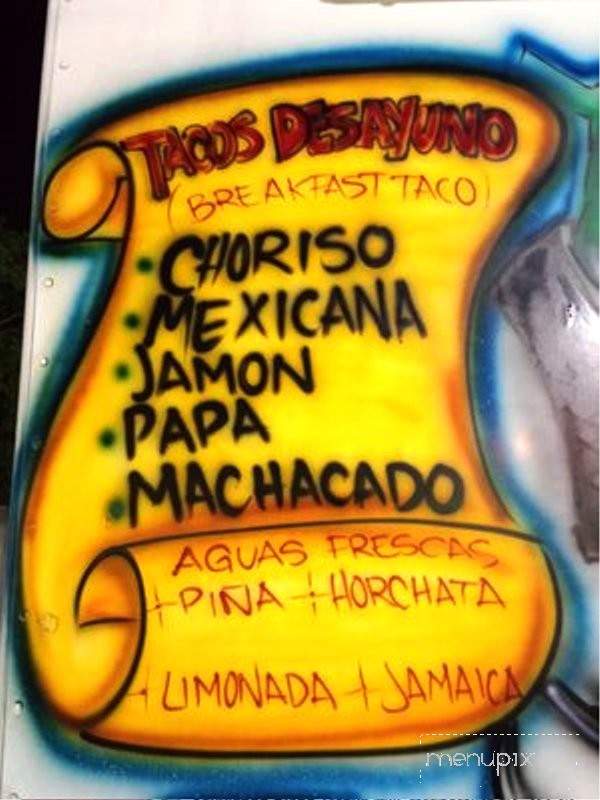 TACOS DESAYUNO
(BREAKFAST TACO)
• CHORISO
• MEXICANA
• JAMON
• PAPA
• MACHACADO
AGUAS FRESCAS
+PIÑA +HORCHATA
+LIMONADA +JAMAICA
menupix